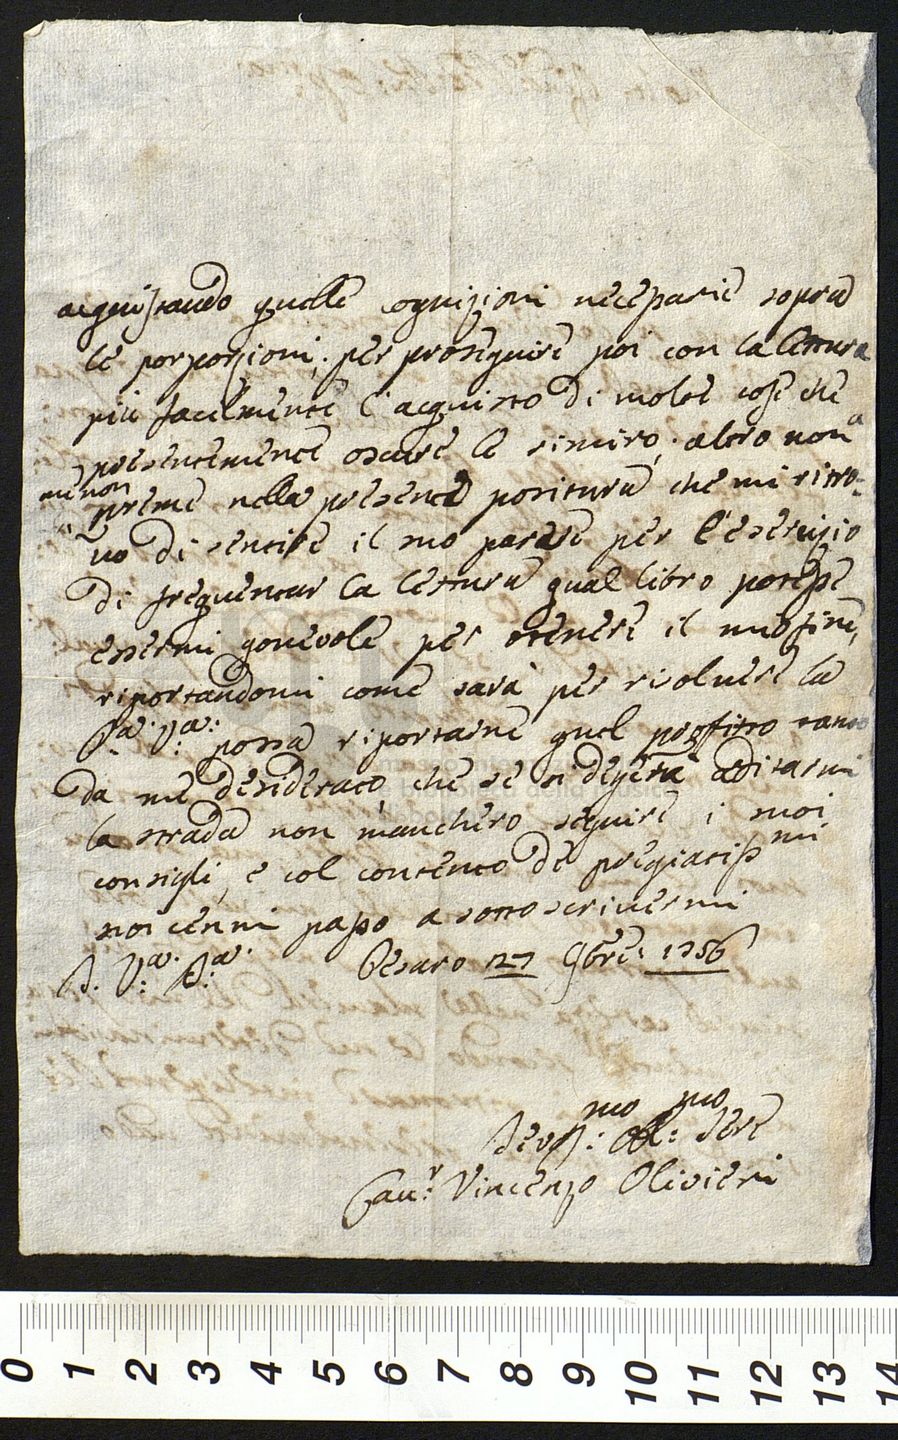 acquistando quelle cognizioni necessarie sopra
le porporzioni, per proseguire poi con la lettura
più facilmente l'acquisto di molte cose che
presentemente oscure le rimiro; altro non a
me non preme nella presente positura che mi ritro-
vo di sentire il suo parere per l'esercizio
di frequentar la lettura qual libro potesse
essermi gionevole per ottenere il mio fine,
riportandomi come sarà per risolvere la
P.a V.a: possa riportarne quel profitto tanto
da me desiderato che se si degerà aditarmi
la strada non mancherò seguire i suoi
consigli, e col contento de pregiatiss.mi
suoi cenni passo a sottoscrivermi
D. V.a: P.a: Pesaro 27 9bre: 1756
Dev.mo: Obl.mo: Sere
Cav.r: Vincenzo Olivieri
0 1 2 3 4 5 6 7 8 9 10 11 12 13 14